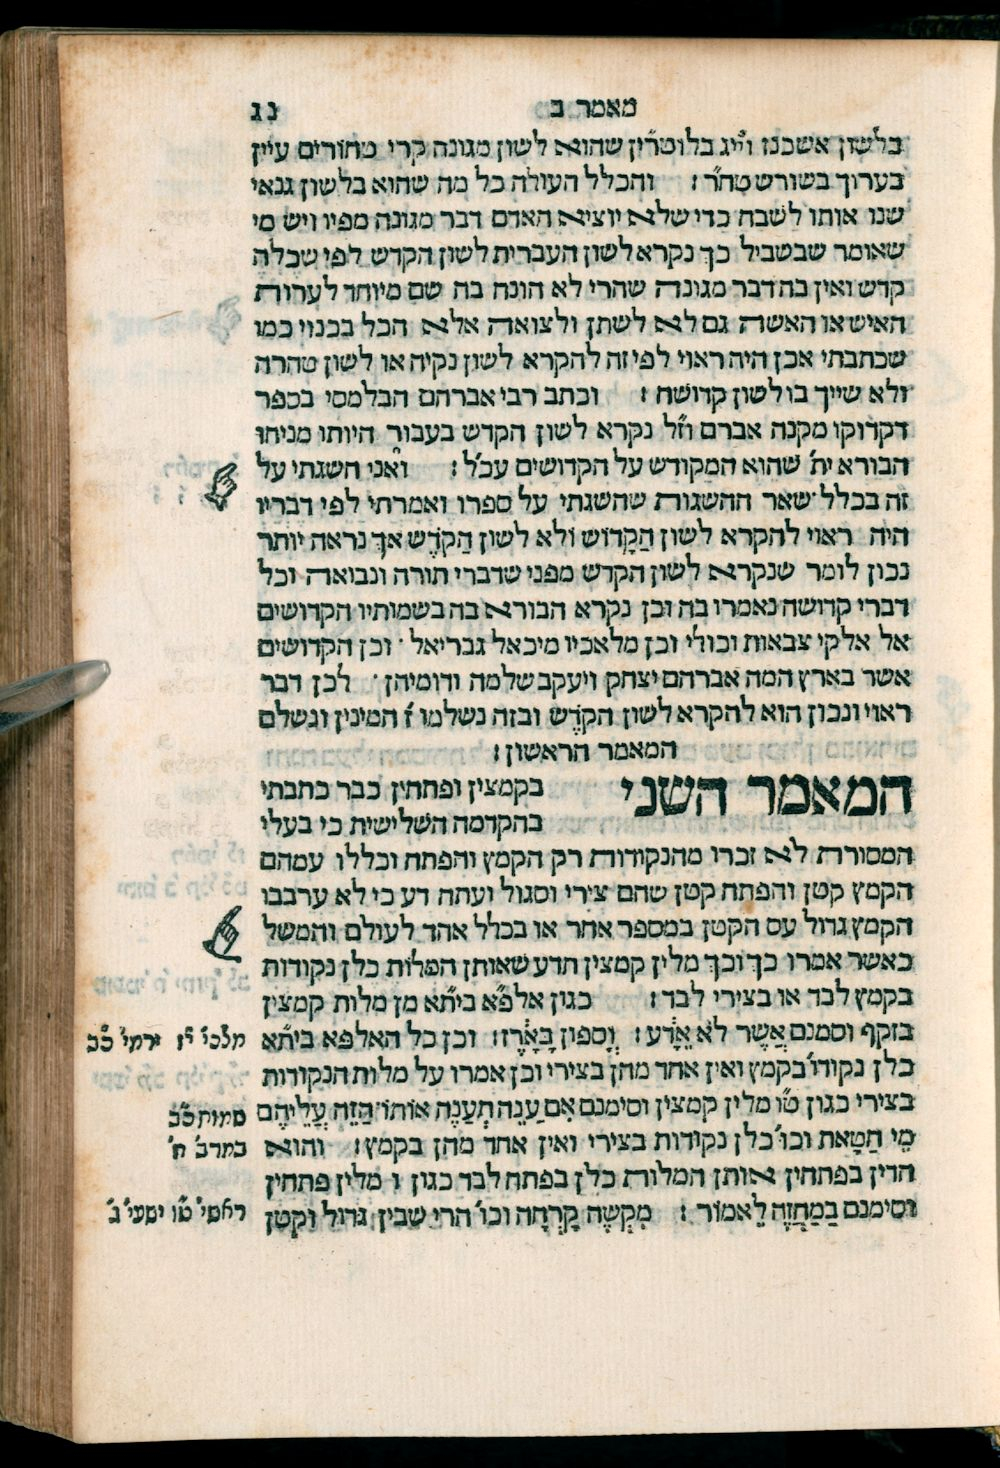 מאמר ב נג
בלשון אשכנז וי״ג בלוטרין שהוא לשון מגונה קרי טחורים עיין
בערוך בשורש טח״ר : והכלל העולה כל מה שהוא בלשון גנאי
שנו אותו לשבח כדי שלא יוציא האדם דבר מגונה מפיו ויש מי
שאומר שבשביל כך נקרא לשון העברית לשון הקדש לפי שכלה
קדש ואין בה דבר מגונה שהרי לא הונה בה שם מיוחד לערות
האיש או האשה גם לא לשתן ולצואה אלא הכל בכנוי כמו
שכתבתי אכן היה ראוי לפי זה להקרא לשון נקיה או לשון טהרה
ולא שייך בו לשון קדושה : וכתב רבי אברהם הבלמסי בספר
דקדוקו מקנה אברם וז״ל נקרא לשון הקדש בעבור היותו מניחו
הבורא ית׳ שהוא המקודש על הקדושים עכ״ל : ואני השגתי על
זה בכלל שאר ההשגות שהשגתי על ספרו ואמרתי לפי דבריו
היה ראוי להקרא לשון הַקָדוֹש ולא לשון הַקֹדֶש אך נראה יותר
נכון לומר שנקרא לשון הקדש מפני שדברי תורה ונבואה וכל
דברי קדושה נאמרו בה וכן נקרא הבורא בה בשמותיו הקדושים
אל אלקי צבאות וכולי וכן מלאכיו מיכאל גבריאל · וכן הקדושים
אשר בארץ המה אברהם יצחק ויעקב שלמה ודומיהן · לכן דבר
ראוי ונכון הוא להקרא לשון הקֹדֶש ובזה נשלמו ז׳ המינין ונשלם
המאמר הראשון :
המאמר השני בקמצין ופתחין כבר כתבתי
בהקדמה השלישית כי בעלי
המסורת לא זכרו מהנקודות רק הקמץ והפתח וכללו עמהם
הקמץ קטן והפתח קטן שהם צירי וסגול ועתה דע כי לא ערבבו
הקמץ גדול עם הקטן במספר אחר או בכלל אחד לעולם והמשל
כאשר אמרו כך וכך מלין קמצין תדע שאותן המלות כלן נקודות
בקמץ לבד או בצירי לבד : כגון אלפ״א בית״א מן מלות קמצין
בזקף וסמנם אֲשֶר לֹא אֵדָע : וְסָפוּן בָּאָרֶז : וכן כל האלפא בית״א
מלכי׳ י״ז ירמי׳ כ״ב
כלן נקודו׳ בקמץ ואין אחד מהן בצירי וכן אמרו על מלות הנקודות
בצירי כגון ט״ו מלין קמצין וסימנם אִם עַנֵה תְעַנֶה אוֹתוֹ הַזֵה עֲלֵיהֶם
שמות כ״ב
מֵי חַטָאת וכו׳ כלן נקודות בצירי ואין אחד מהן בקמץ : והוא
במדב׳ ח׳
הדין בפתחין אותן המלות כלן בפתח לבד כגון ו מלין פתחין
וסימנם בַמַחֲזֶה לֵאמוֹר : מִקְשֶה קָרְחָה וכו׳ הרי שבין גדול וקטן
ראשי׳ ט״ו ישעי׳ ג׳